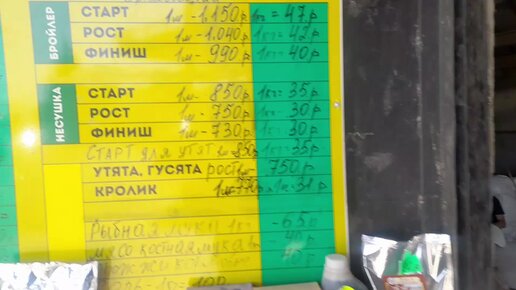 БРОЙЛЕР
СТАРТ 1м - 1.150р 1кг = 47р
РОСТ 1м - 1.040р 1кг = 42р
ФИНИШ 1м - 990р 1кг = 40р
НЕСУШКА
СТАРТ 1м - 850р 1кг = 35р
РОСТ 1м - 750р 1кг = 30р
ФИНИШ 1м - 730р 1кг = 30р
СТАРТ для УТЯТ 850р 1кг = 35р
УТЯТА, ГУСЯТА рост 750р
КРОЛИК 1м 770р 1кг 31р
Рыбная мука 1кг - 65р
мясо костная мука